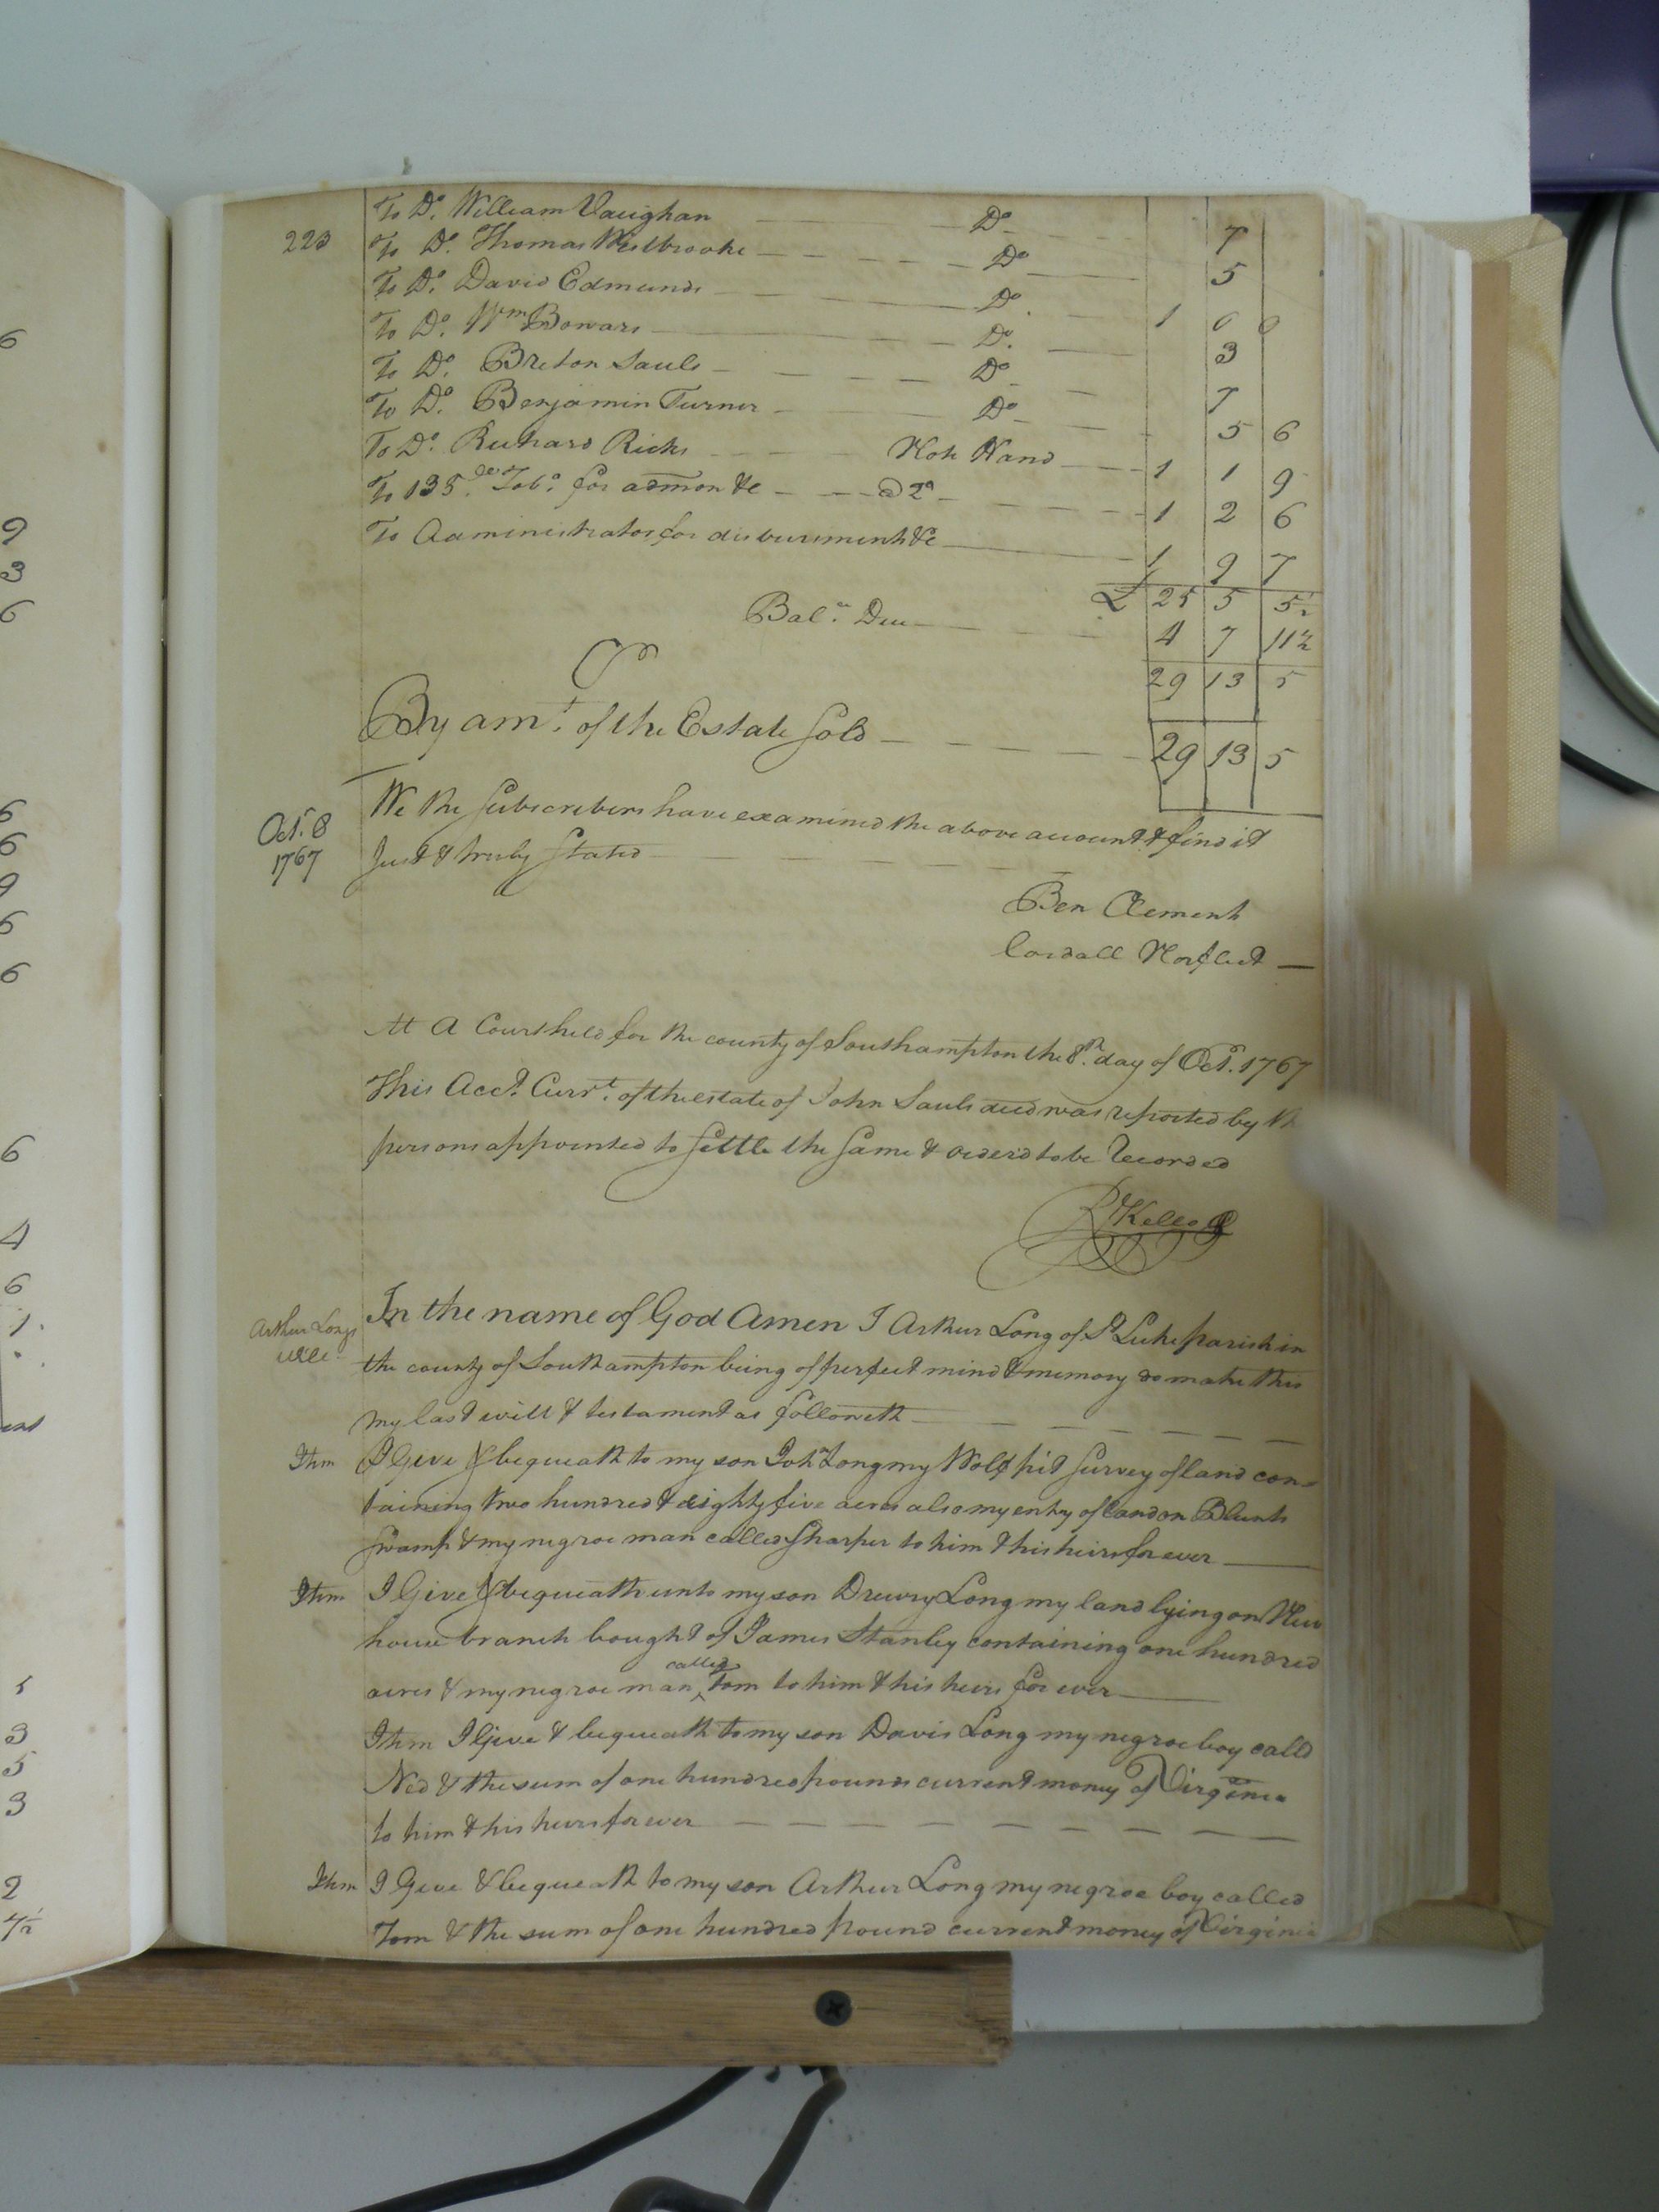 223
To Do. William Vaughan Do 7
To Do. Thomas Westbrooke Do 5
To Do. David Edmunds Do. 1 0 0
To Do. Wm Bowars Do. 3
To Do. Breton Sauls Do 7
To Do. Benjamin Turner Do 5 6
To Do. Richard Ricks Note Hand 1 1 9
To 135 Tobo. for admon &c @ 2d 1 2 6
To Administrator for disbursments &c 1 9 7
£ 25 5 5½
Bale. Due 4 7 11½
29 13 5
Cr
By amt. of the Estate Sold 29 13 5
29 13 5
Oct. 8
1767
We the Subscribers have examined the above account & find it
Just & truly Stated
Ben Clements
Cordall Norfleet
At A Court held for the county of Southampton the 8th. day of Oct. 1767
This Acct. Currt. of the estate of John Sauls decd was reported by
persons appointed to settle the same & orderd to be Recorded
R Kello
Arthur Longs
Will
In the name of God Amen I Arthur Long of St Luke parish in
the county of Southampton being of perfect mind & memory do make this
my last will & testament as followeth
Itm I Give & bequeath to my son Jon Long my Wolf pit survey of land con-
taining two hundred & eighty five acres also my entry of land on Blunts
Swamp & my negroe man called Sharper to him & his heirs for ever
Itm I Give & bequeath unto my son Drewry Long my land lying on
house branch bought of James Stanley containing one hundred
acres & my negroe man called Tom to him & his heirs for ever
Itm I Give & bequeath to my son Davis Long my negroe boy calld
Ned & the sum of one hundred pounds current money of Virginia
to him & his heirs for ever
Itm I Give & bequeath to my son Arthur Long my negroe boy called
Tom & the sum of one hundred pound current money of Virginia